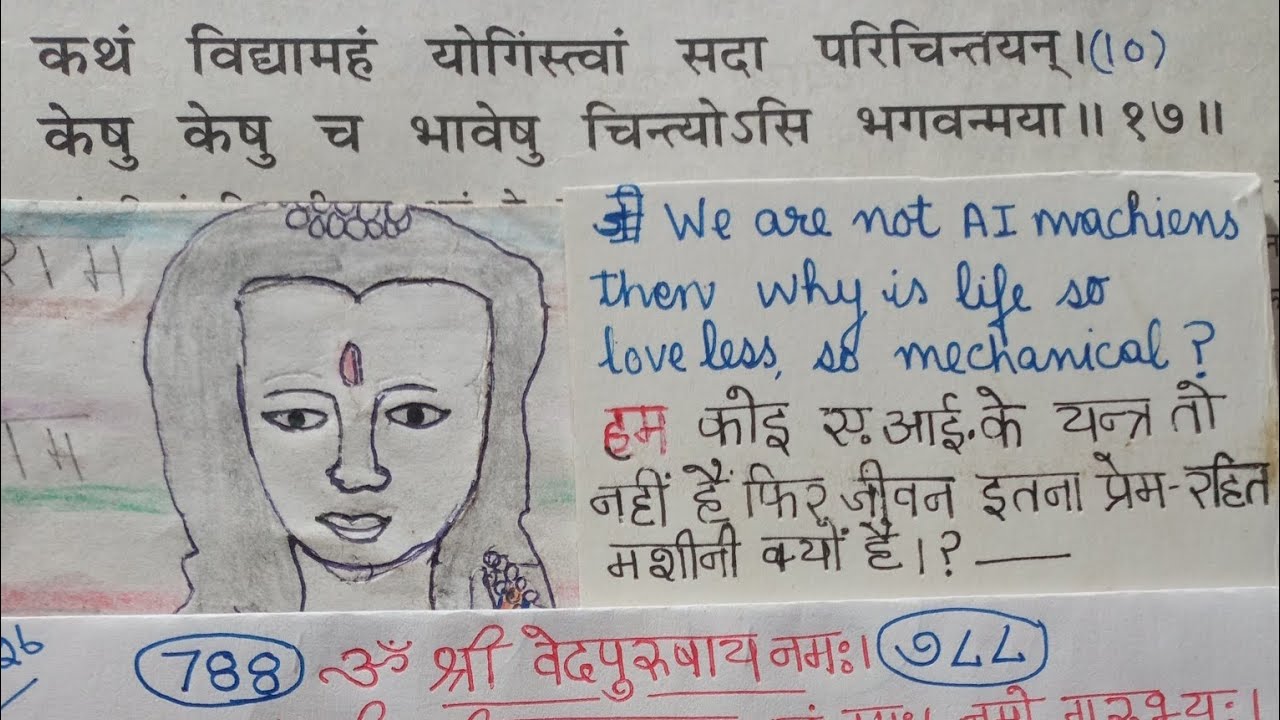 कथं विद्यामहं योगिंस्त्वां सदा परिचिन्तयन्।(१०)
केषु केषु च भावेषु चिन्त्योऽसि भगवन्मया॥ १७॥
We are not AI machiens
then why is life so
loveless, so mechanical?
हम कोइ ए.आई.के यन्त्र तो
नहीं हैं फिर जीवन इतना प्रेम-रहित
मशीनी क्यों है।?
788 ॐ श्री वेदपुरुषाय नमः। ७८८